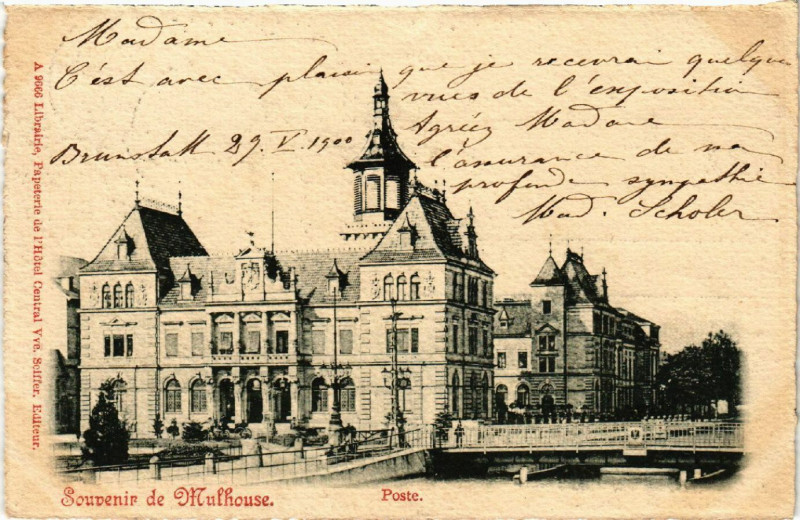 Madame
C'est avec plaisir que je recevrai quelques
vues de l'exposition
Brunstatt 29. V. 1900
Agréez Madame
l'assurance de ma
profonde sympathie
Mad. Scholer
A 9066 Librairie, Papeterie de l'Hôtel Central Vve. Seiffer, Editeur.
Souvenir de Mulhouse.
Poste.